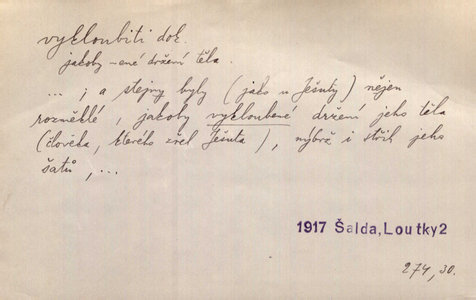 vykloubiti dok.
jakoby ~ené držení těla.
... ; a stejny byly (jako u Ješuty) nejen
rozměklé, jakoby vykloubené držení jeho těla
(člověka, kterého zřel Ješuta), nýbrž i střih jeho
šatů, ...
1917 Šalda, Loutky2
274, 30.